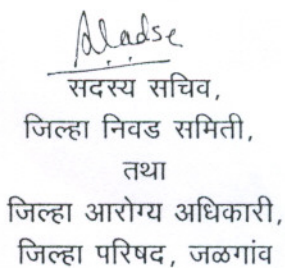 सदस्य सचिव,
जिल्हा निवड समिती,
तथा
जिल्हा आरोग्य अधिकारी,
जिल्हा परिषद, जळगांव